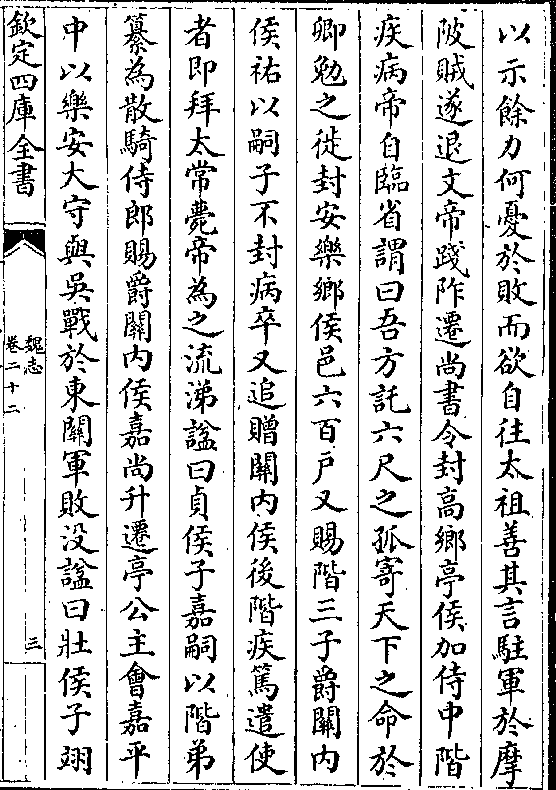 以示餘力何憂於敗而欲自往太祖善其言駐軍於摩
陂賊遂退文帝踐阼遷尚書令封高鄉亭侯加侍中階
疾病帝自臨省謂曰吾方託六尺之孤寄天下之命於
卿勉之徙封安樂鄉侯邑六百戶又賜階三子爵關内
侯祐以嗣子不封病卒又追贈關内侯後階疾篤遣使
者即拜太常薨帝為之流涕諡曰貞侯子嘉嗣以階弟
纂為散騎侍郎賜爵關内侯嘉尚升遷亭公主會嘉平
中以樂安大守與吳戰於東關軍敗没諡曰壯侯子翊
欽定四庫全書
魏志
卷二十二
三